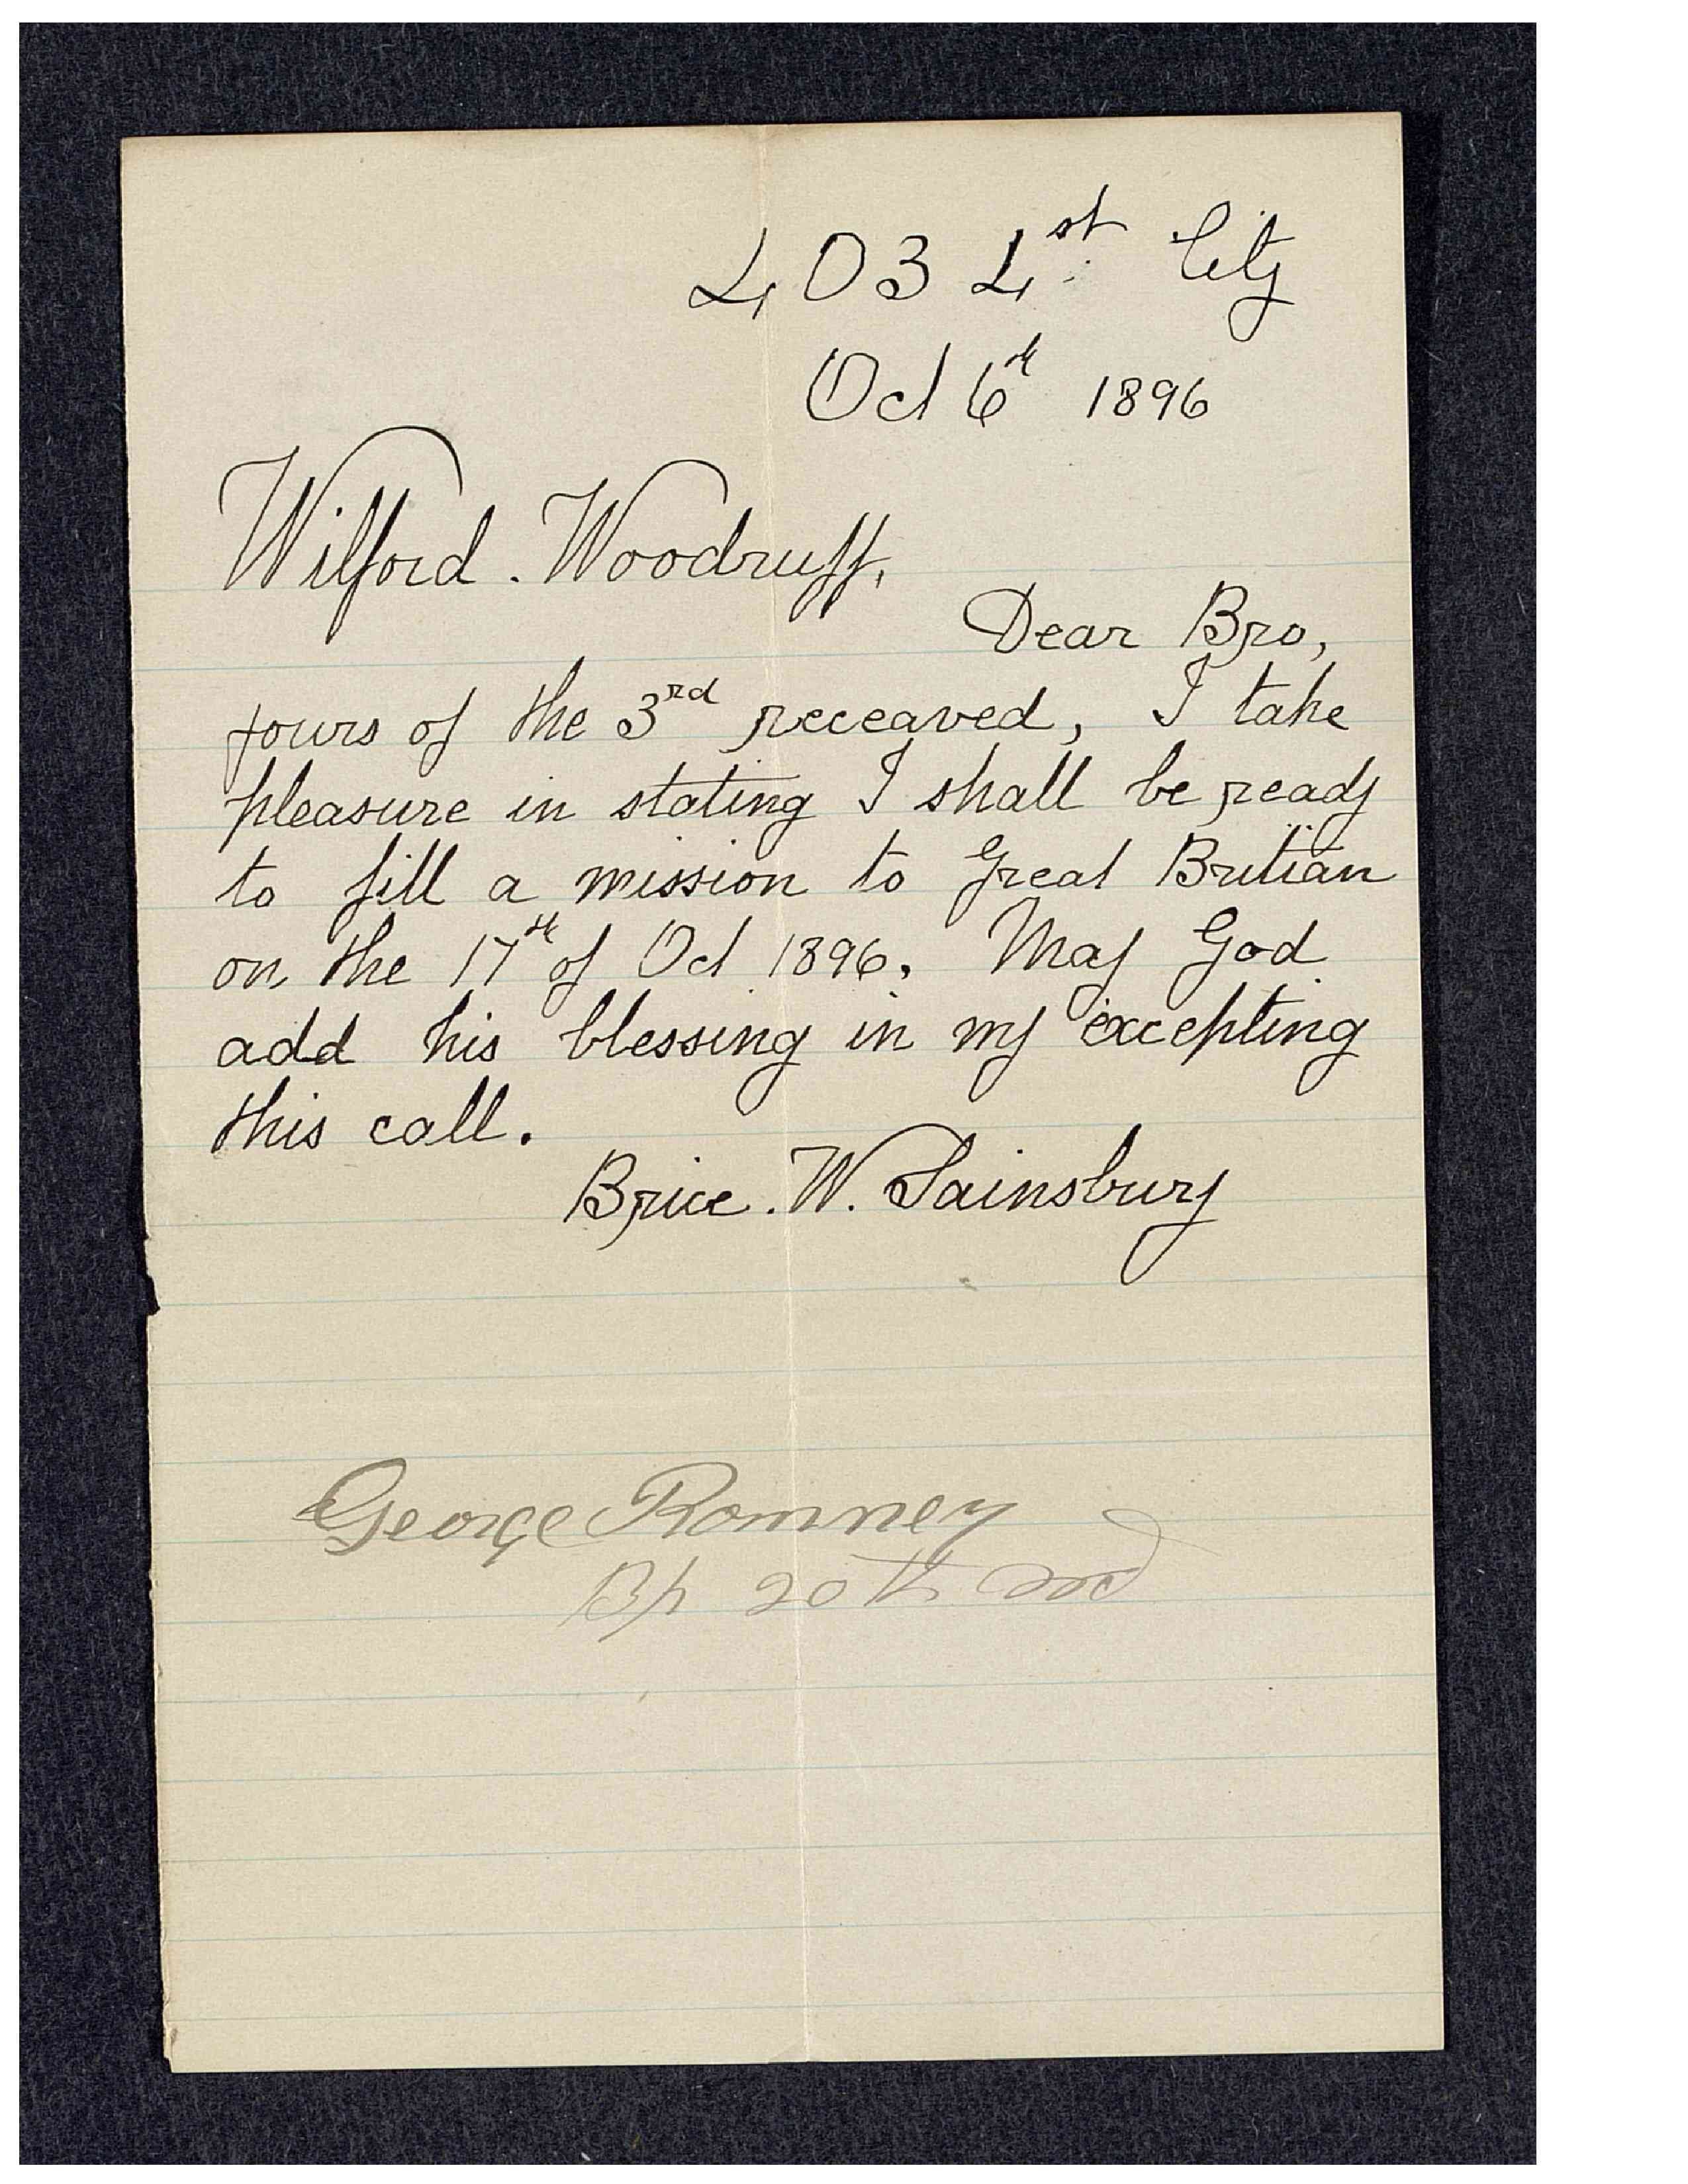 403 4st City
Oct 6th 1896
Wilford. Woodruff,
Dear Bro,
yours of the 3rd receaved, I take
pleasure in stating I shall be ready
to fill a mission to Great Britian
on the 17th of Oct 1896. May God
add his blessing in my excepting
this call.
Brice. W. Sainsbury
George Romney
Bp 20th wd